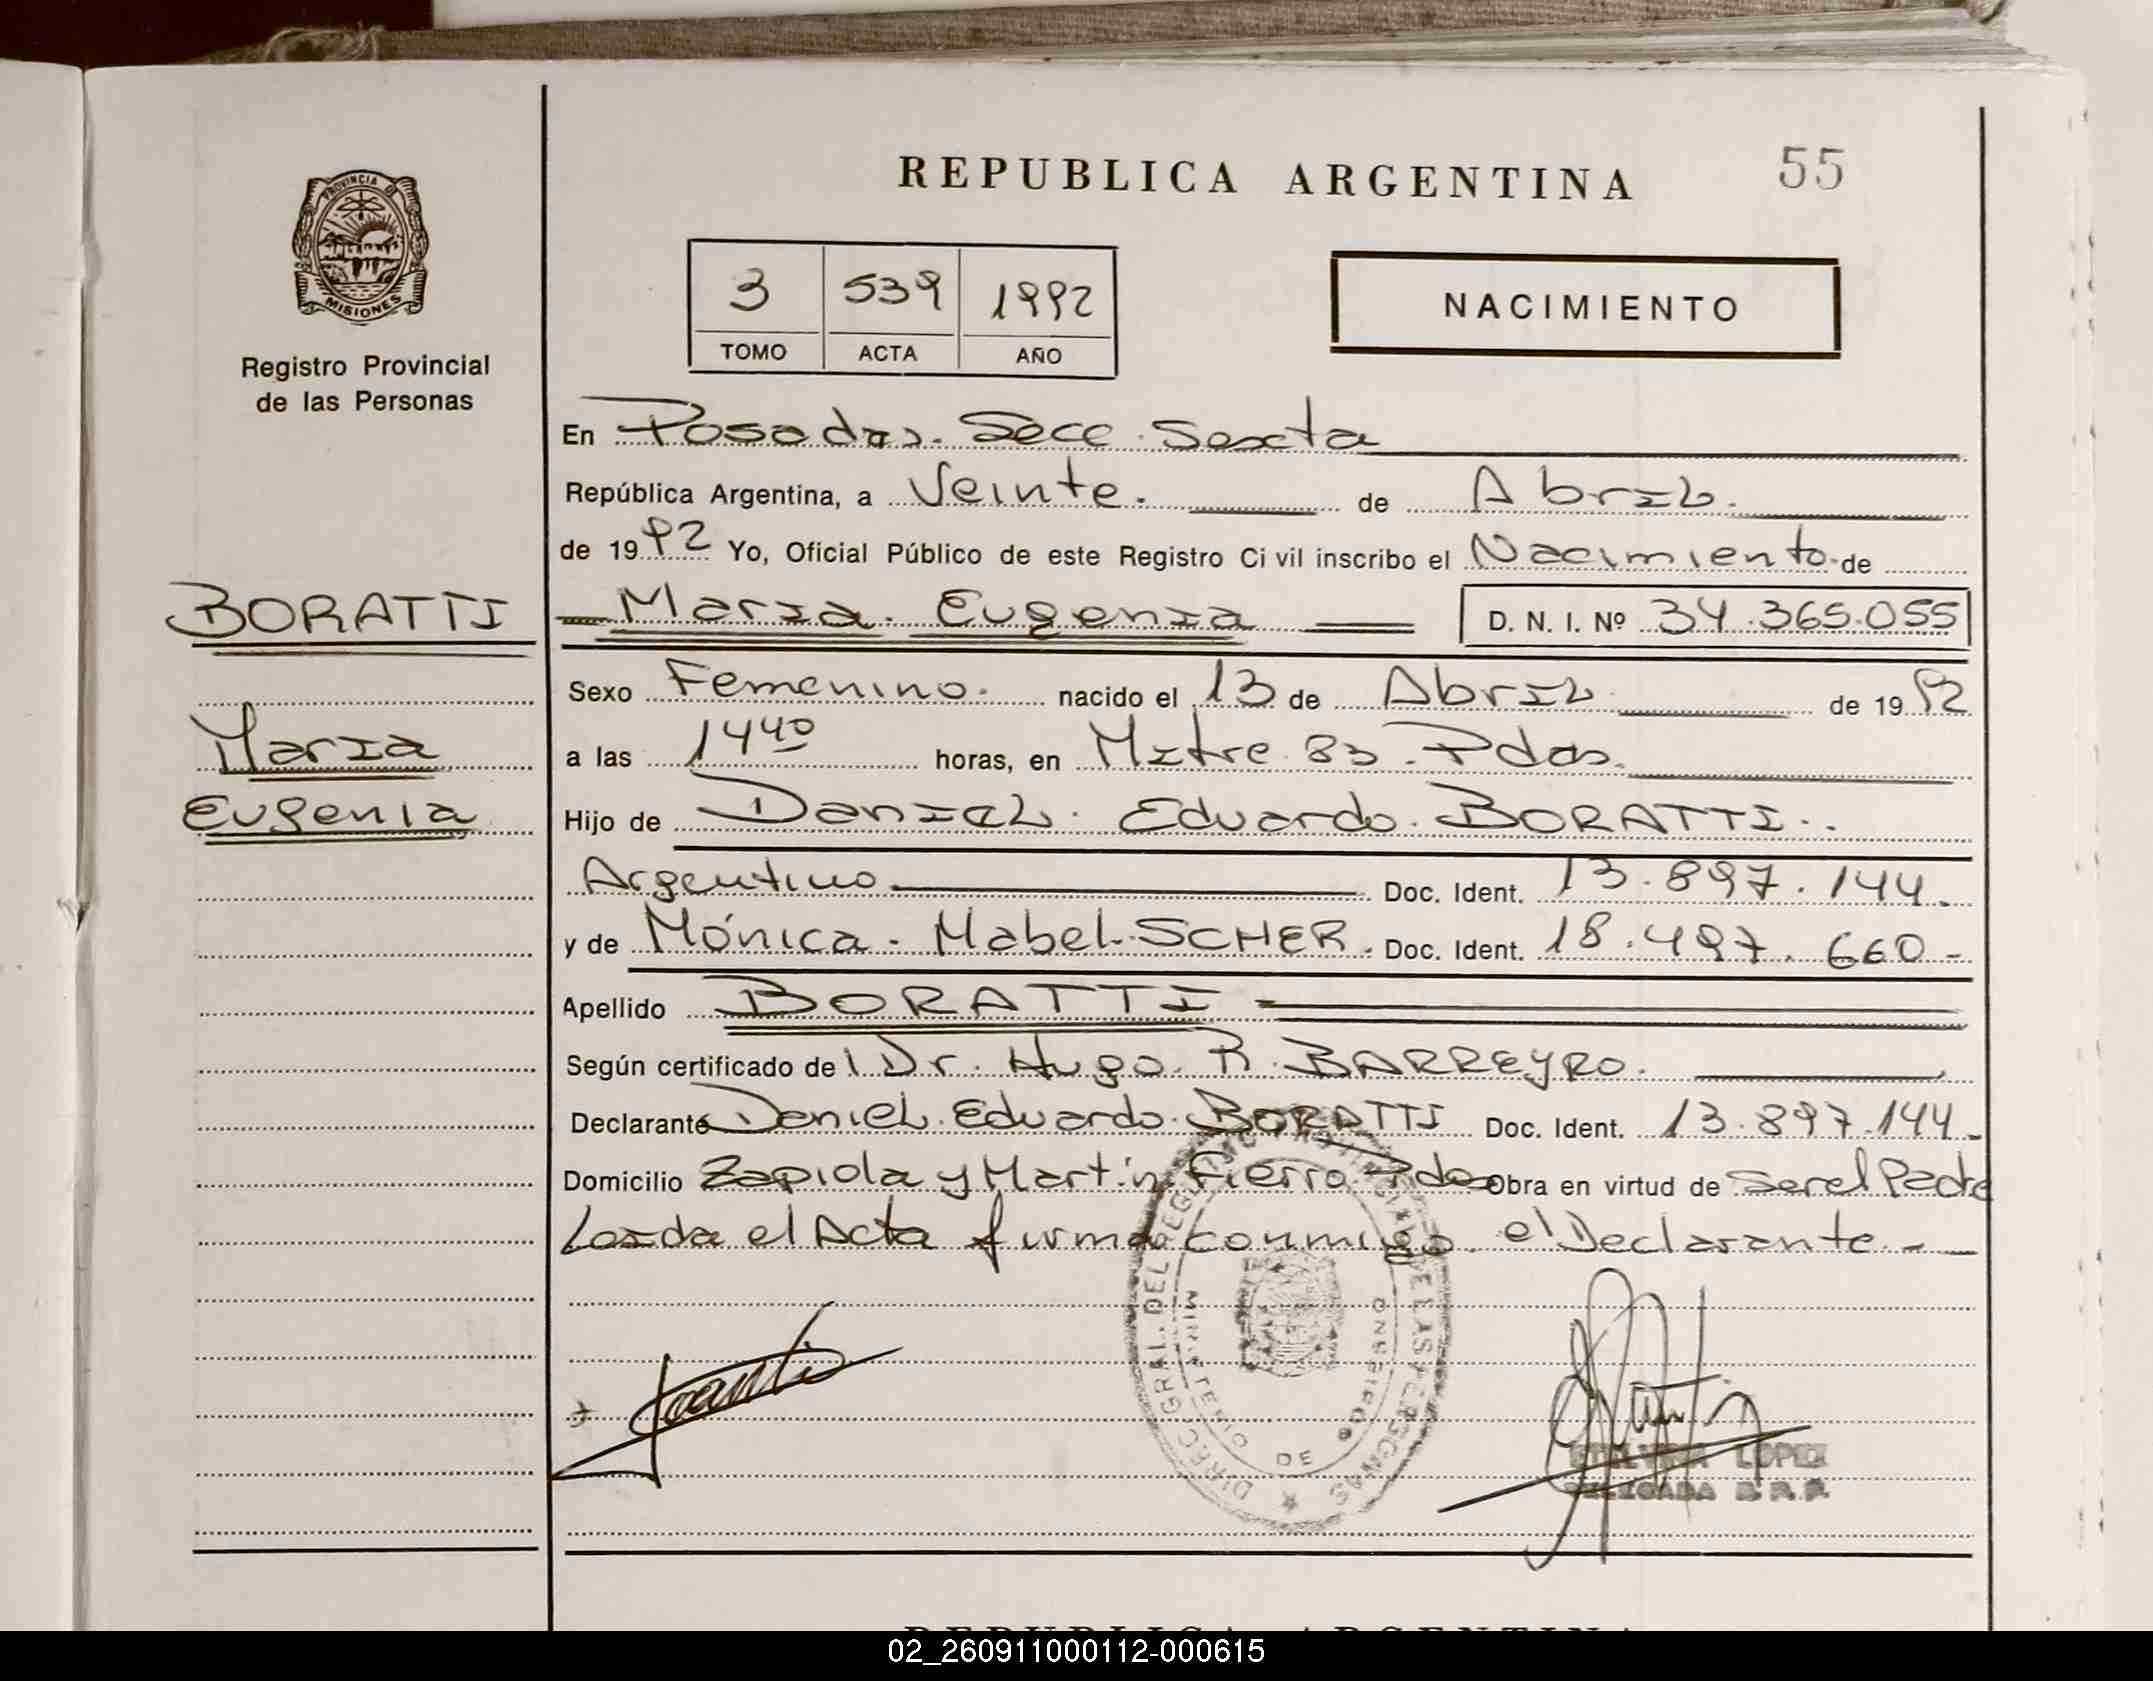 REPUBLICA ARGENTINA
55
PROVINCIA DE
MISIONES
Registro Provincial
de las Personas
3 539 1992
TOMO ACTA AÑO
NACIMIENTO
En Posadas. Secc. Sexta
República Argentina, a Veinte. de Abril.
de 1992 Yo, Oficial Público de este Registro Civil inscribo el Nacimiento de
BORATTI
Maria. Eugenia D. N. I. Nº 34.365.055
Sexo Femenino. nacido el 13 de Abril de 1992
Maria
a las 14 40 horas, en Mitre 83. Pdas.
Eugenia
Hijo de Daniel. Eduardo. BORATTI.
Argentino Doc. Ident. 13.897.144.
y de Mónica. Mabel. SCHER. Doc. Ident. 18.497.660-
Apellido BORATTI
Según certificado de Dr. Hugo. R. BARREYRO.
Declarante Daniel. Eduardo. BORATTI Doc. Ident. 13.897.144-
Domicilio Zapiola y Martin Fierro Pdas Obra en virtud de Ser el Padre
Leida el Acta firma conmigo el Declarante.-
DIREC. GRAL. DEL REGISTRO PROVINCIAL DE LAS PERSONAS
MINISTERIO DE GOBIERNO
LOPEZ
DELEGADA R.P.P.
REPUBLICA ARGENTINA
02_260911000112-000615